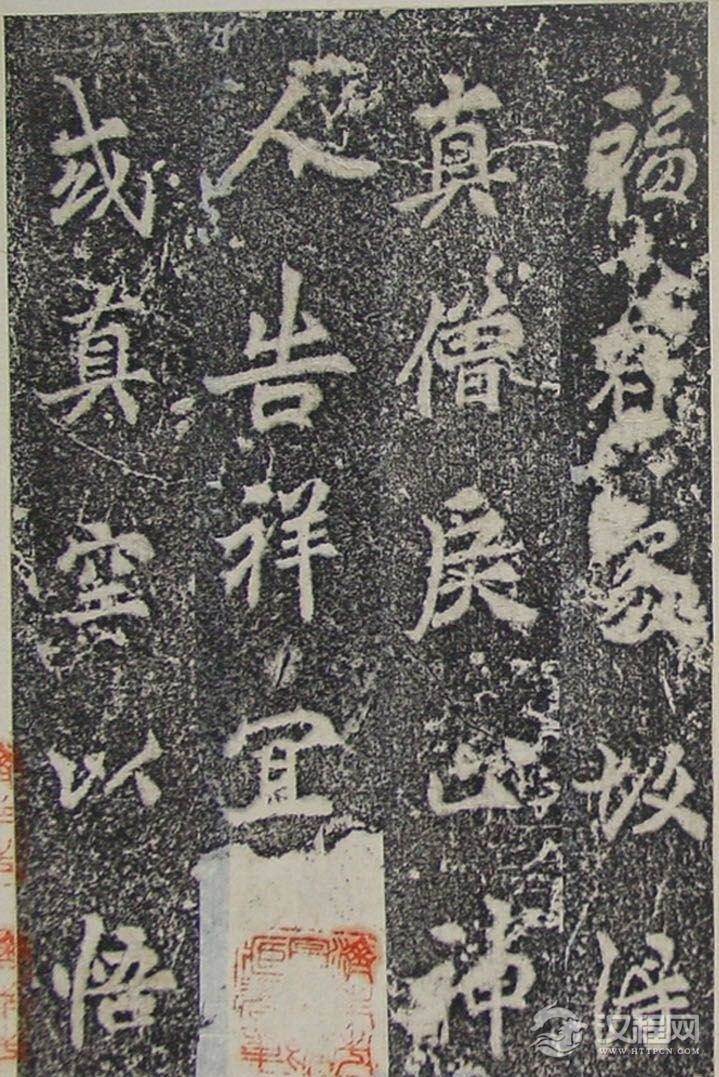 福
故得
真僧戾止神
人告祥宜
或真空以悟
汉程网
WWW.HTTPCN.COM